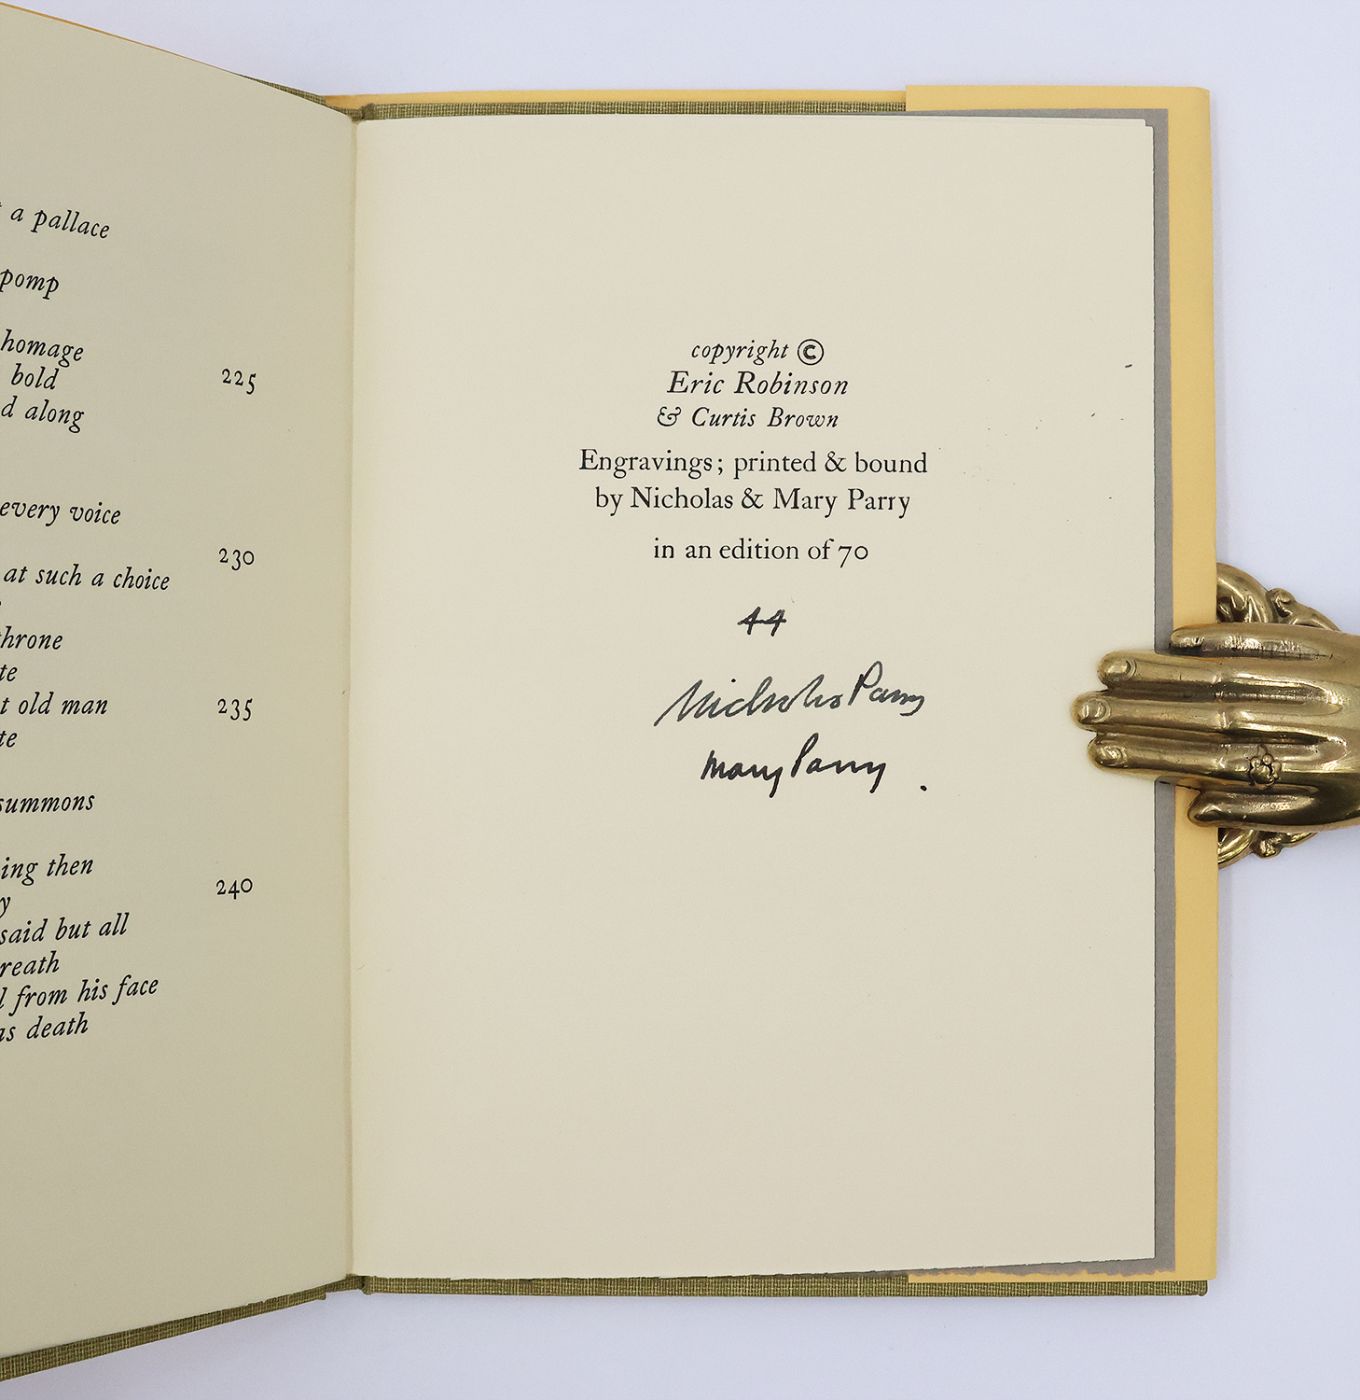 a pallace
pomp
homage
bold 225
d along
every voice
230
at such a choice
throne
te
t old man 235
te
summons
ing then
y 240
said but all
reath
l from his face
as death
copyright ©
Eric Robinson
& Curtis Brown
Engravings; printed & bound
by Nicholas & Mary Parry
in an edition of 70
44
Nicholas Parry
Mary Parry.